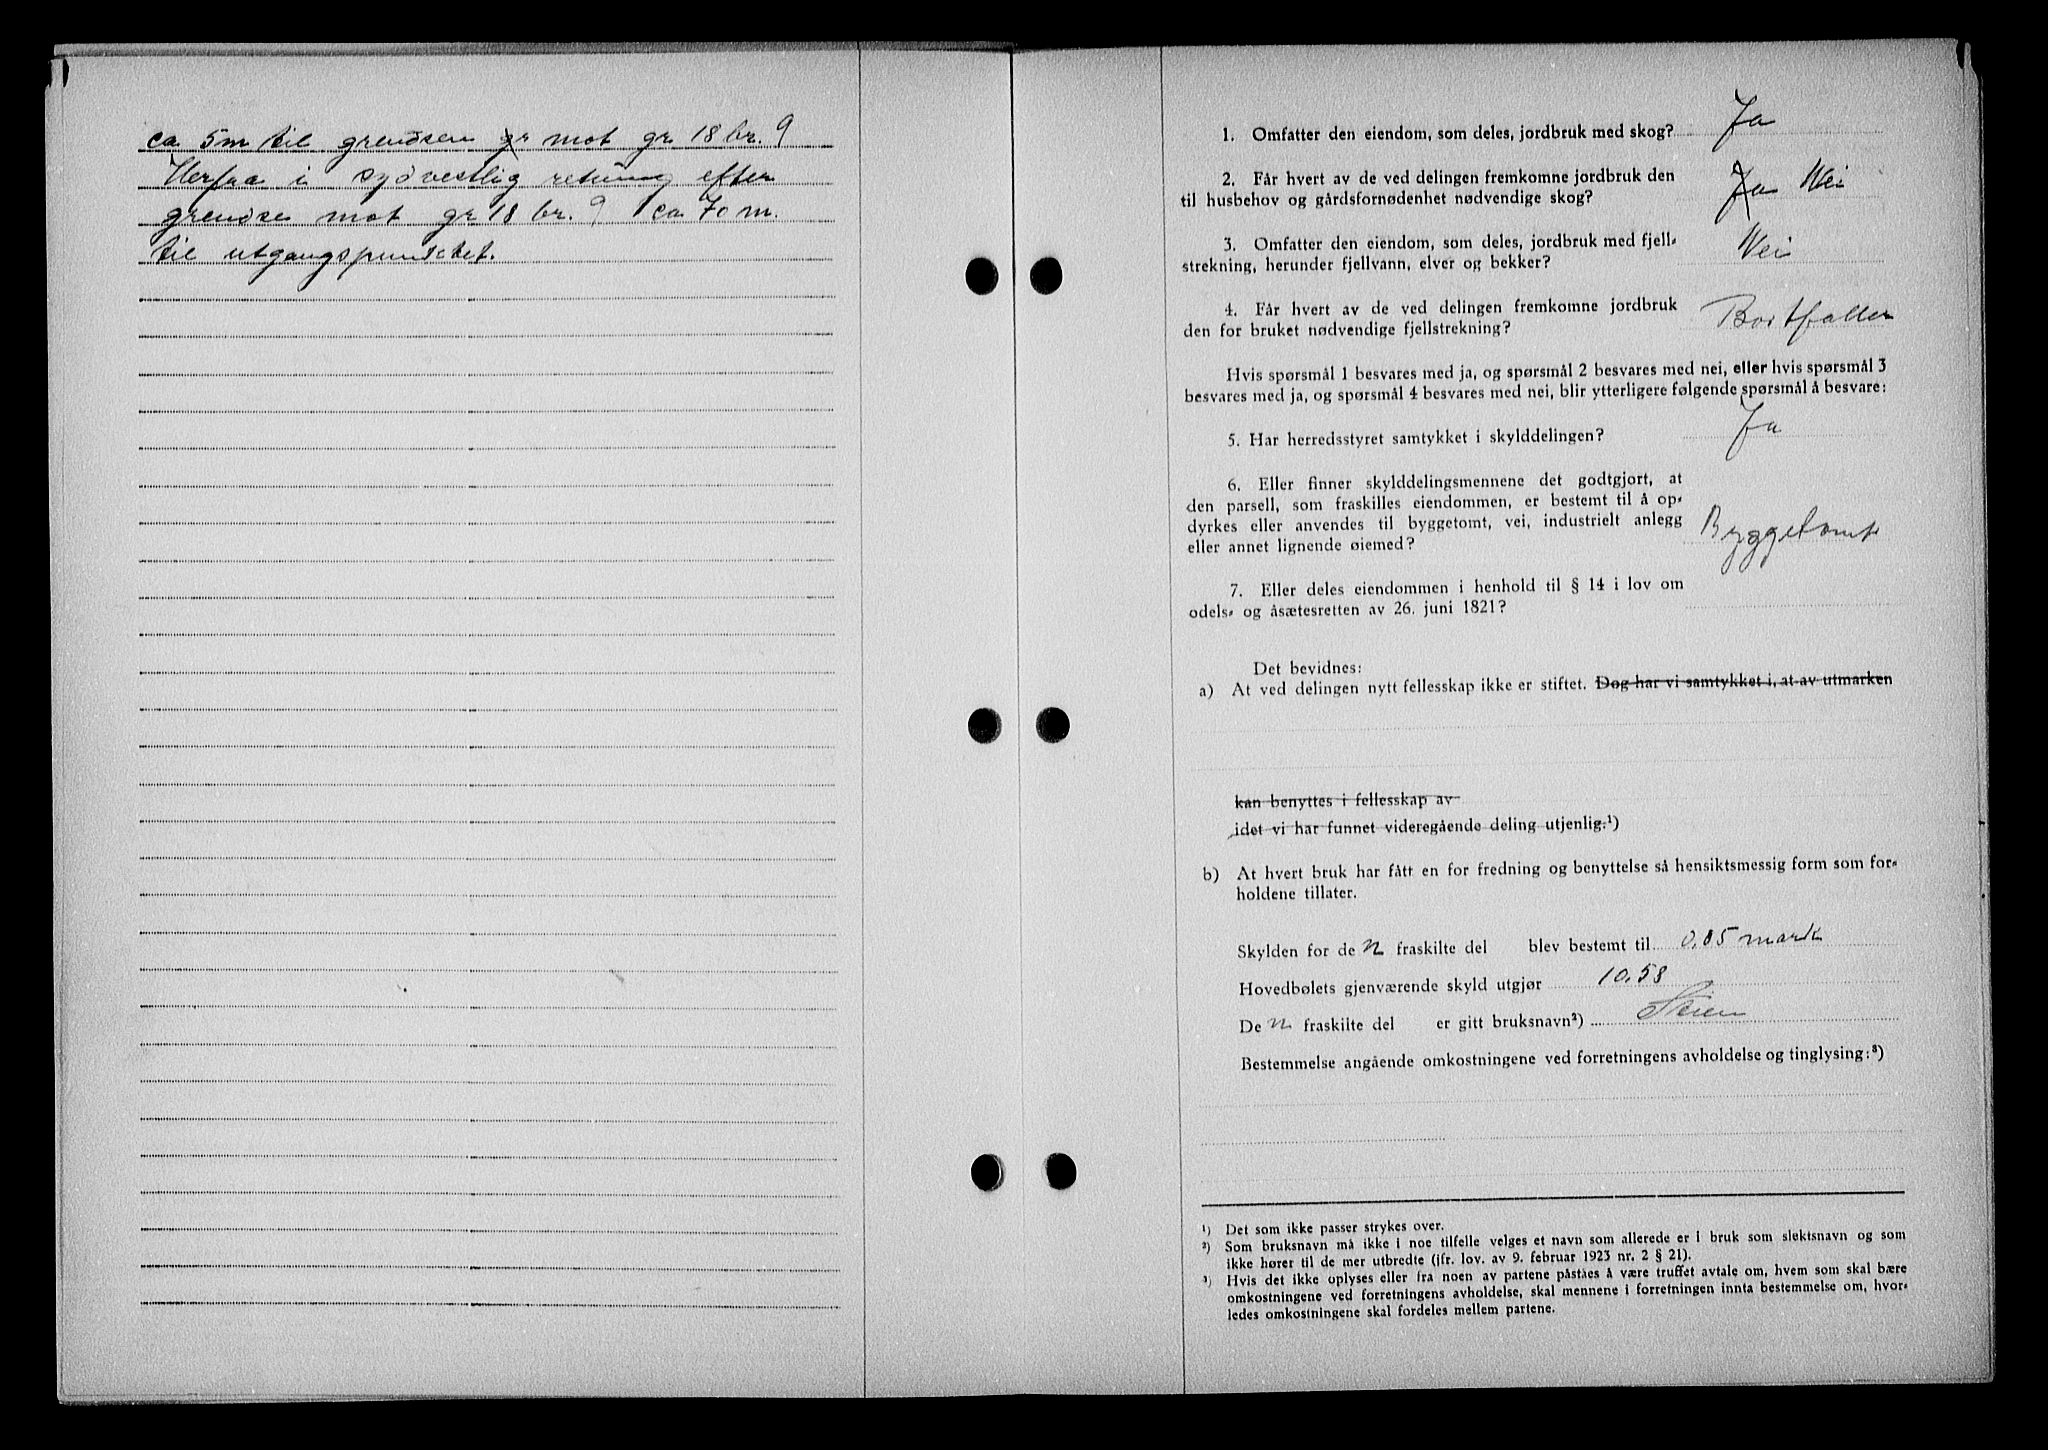 ca 5m til grendsen gr mot gr 18 br. 9
Herfra i sydvestlig retning efter
grendse mot gr 18 br. 9 ca 70 m.
til utgangspunktet.
1. Omfatter den eiendom, som deles, jordbruk med skog? Ja
2. Får hvert av de ved delingen fremkomne jordbruk den
til husbehov og gårdsfornødenhet nødvendige skog? Ja Nei
3. Omfatter den eiendom, som deles, jordbruk med fjell-
strekning, herunder fjellvann, elver og bekker? Nei
4. Får hvert av de ved delingen fremkomne jordbruk
den for bruket nødvendige fjellstrekning? Bortfaller
Hvis spørsmål 1 besvares med ja, og spørsmål 2 besvares med nei, eller hvis spørsmål 3
besvares med ja, og spørsmål 4 besvares med nei, blir ytterligere følgende spørsmål å besvare:
5. Har herredsstyret samtykket i skylddelingen? Ja
6. Eller finner skylddelingsmennene det godtgjort, at
den parsell, som fraskilles eiendommen, er bestemt til å op-
dyrkes eller anvendes til byggetomt, vei, industrielt anlegg
eller annet lignende øiemed? Byggetomt
7. Eller deles eiendommen i henhold til § 14 i lov om
odels- og åsætesretten av 26. juni 1821?
Det bevidnes:
a) At ved delingen nytt fellesskap ikke er stiftet. Dog har vi samtykket i, at av utmarken
kan benyttes i fellesskap av
idet vi har funnet videregående deling utjenlig.¹)
b) At hvert bruk har fått en for fredning og benyttelse så hensiktsmessig form som for-
holdene tillater.
Skylden for de n fraskilte del blev bestemt til 0,05 mark
Hovedbølets gjenværende skyld utgjør 10,58
De n fraskilte del er gitt bruksnavn²)
Bestemmelse angående omkostningene ved forretningens avholdelse og tinglysing:³)
¹) Det som ikke passer strykes over.
²) Som bruksnavn må ikke i noe tilfelle velges et navn som allerede er i bruk som slektsnavn og som
ikke hører til de mer utbredte (jfr. lov. av 9. februar 1923 nr. 2 § 21).
³) Hvis det ikke oplyses eller fra noen av partene påståes å være truffet avtale om, hvem som skal bære
omkostningene ved forretningens avholdelse, skal mennene i forretningen innta bestemmelse om, hvor-
ledes omkostningene skal fordeles mellem partene.